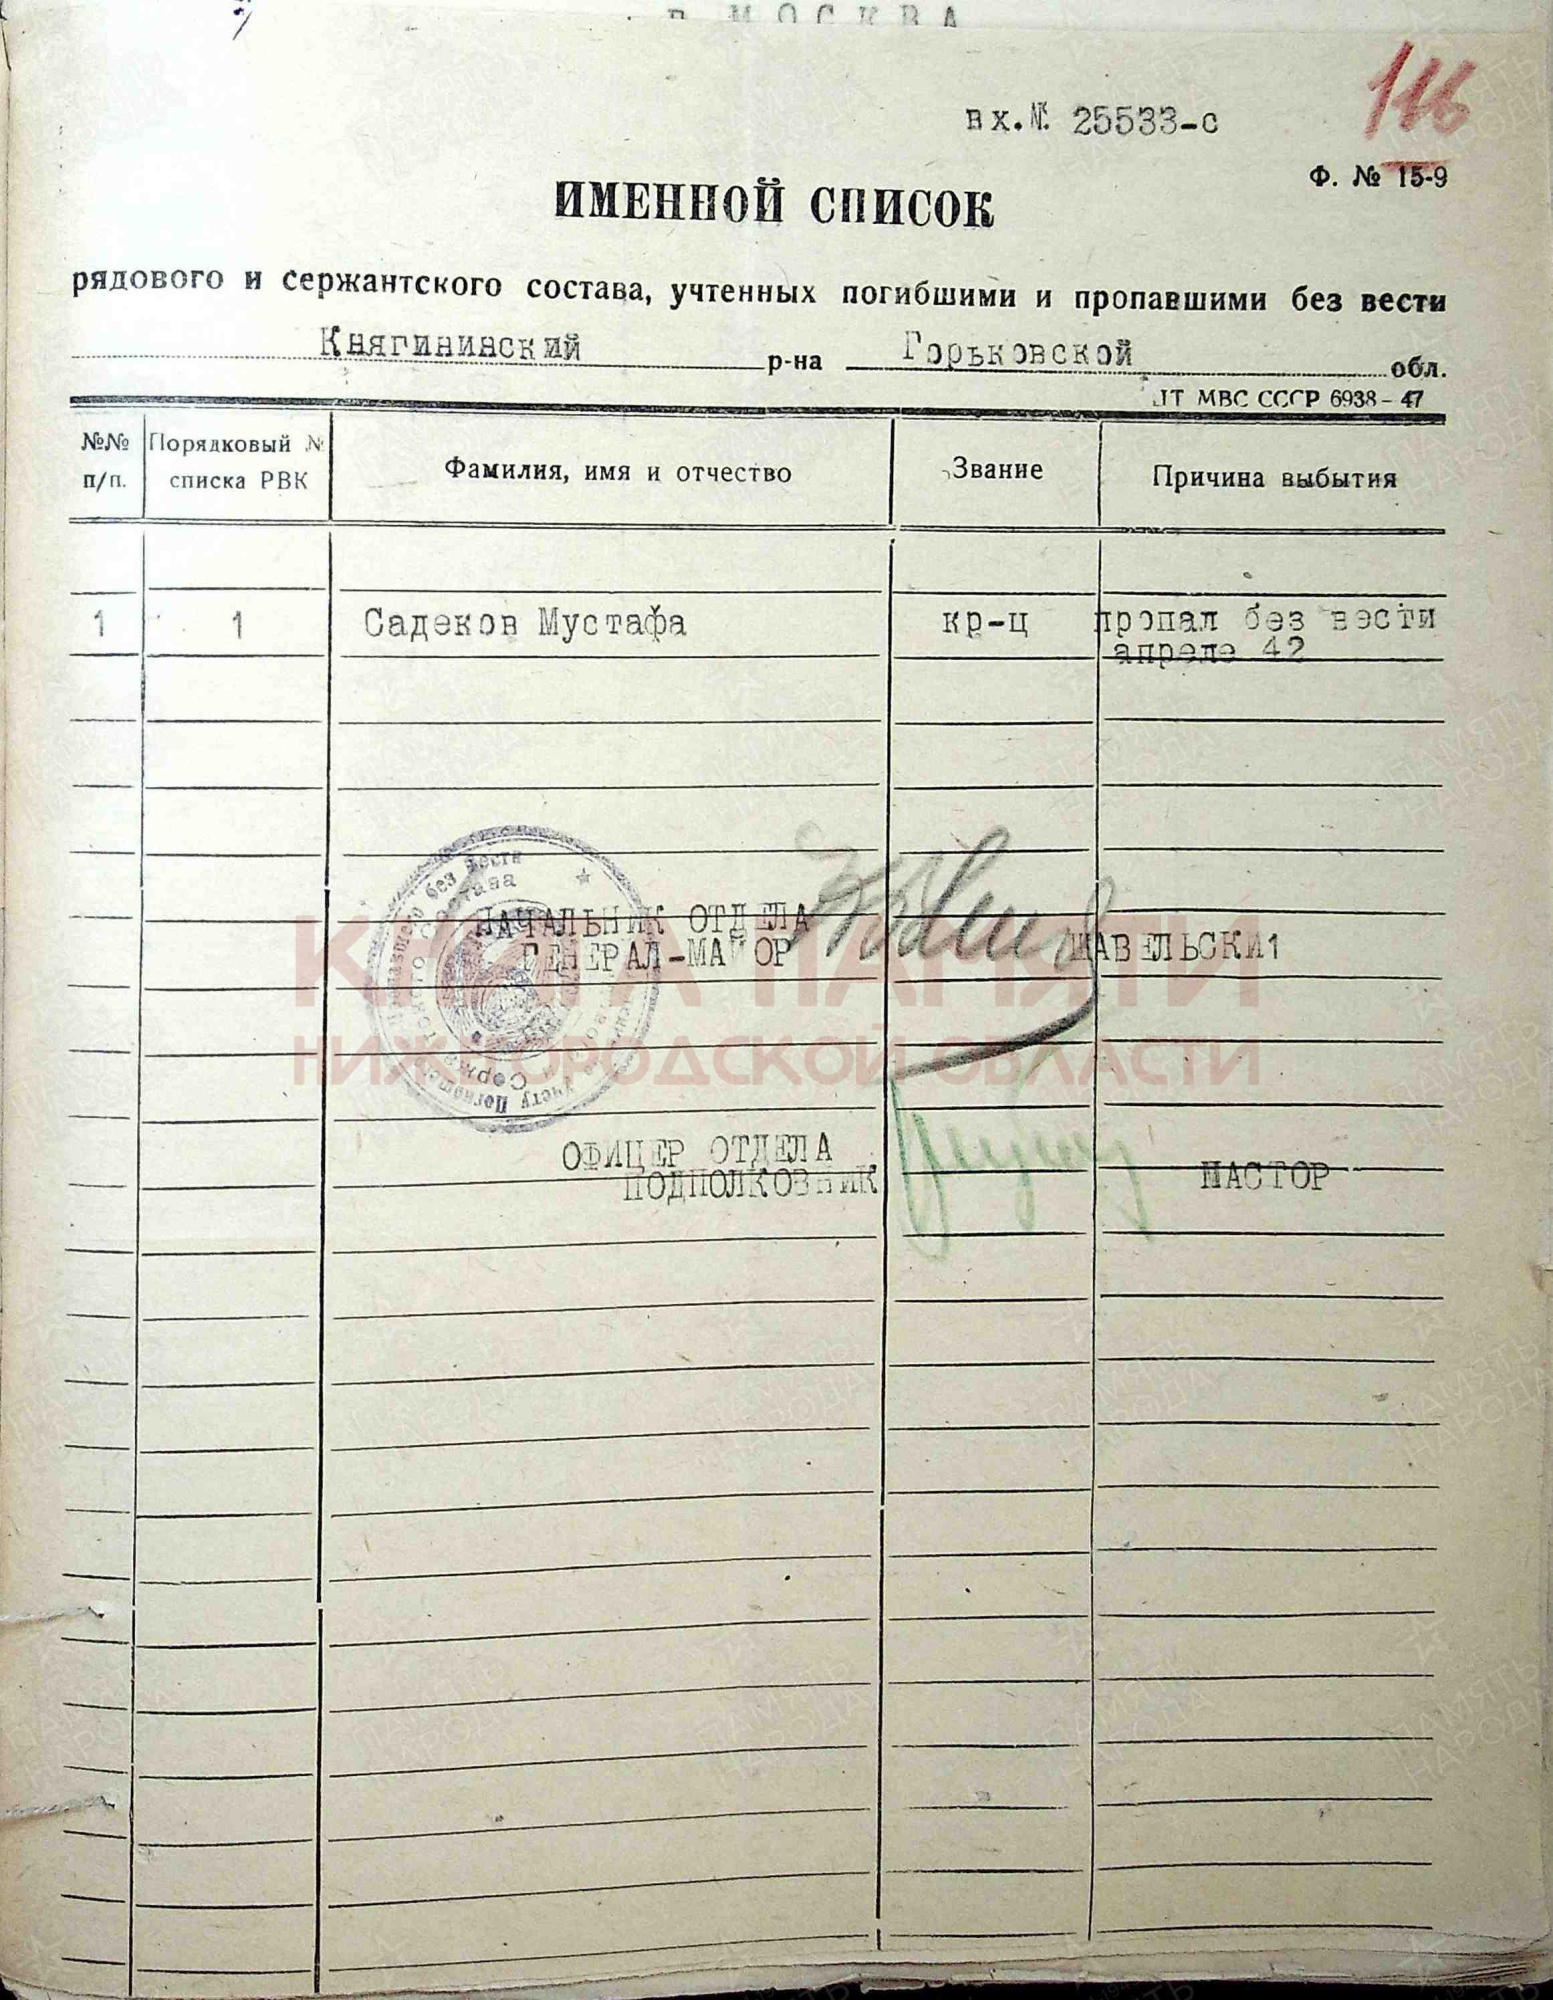 МОСКВА
вх.№. 25533-с
116
Ф. № 15-9
ИМЕННОЙ СПИСОК
рядового и сержантского состава, учтенных погибшими и пропавшими без вести
Княгининский р-на Горьковской обл.
ЛТ МВС СССР 6938-47
№№ п/п. Порядковый № списка РВК Фамилия, имя и отчество Звание Причина выбытия
1 1 Садеков Мустафа кр-ц пропал без вести
апреле 42
НАЧАЛЬНИК ОТДЕЛА
ГЕНЕРАЛ-МАЙОР ШАВЕЛЬСКИ1
КНИГА ПАМЯТИ
НИЖЕГОРОДСКОЙ ОБЛАСТИ
ОФИЦЕР ОТДЕЛА
ПОДПОЛКОВНИК МАСТОР